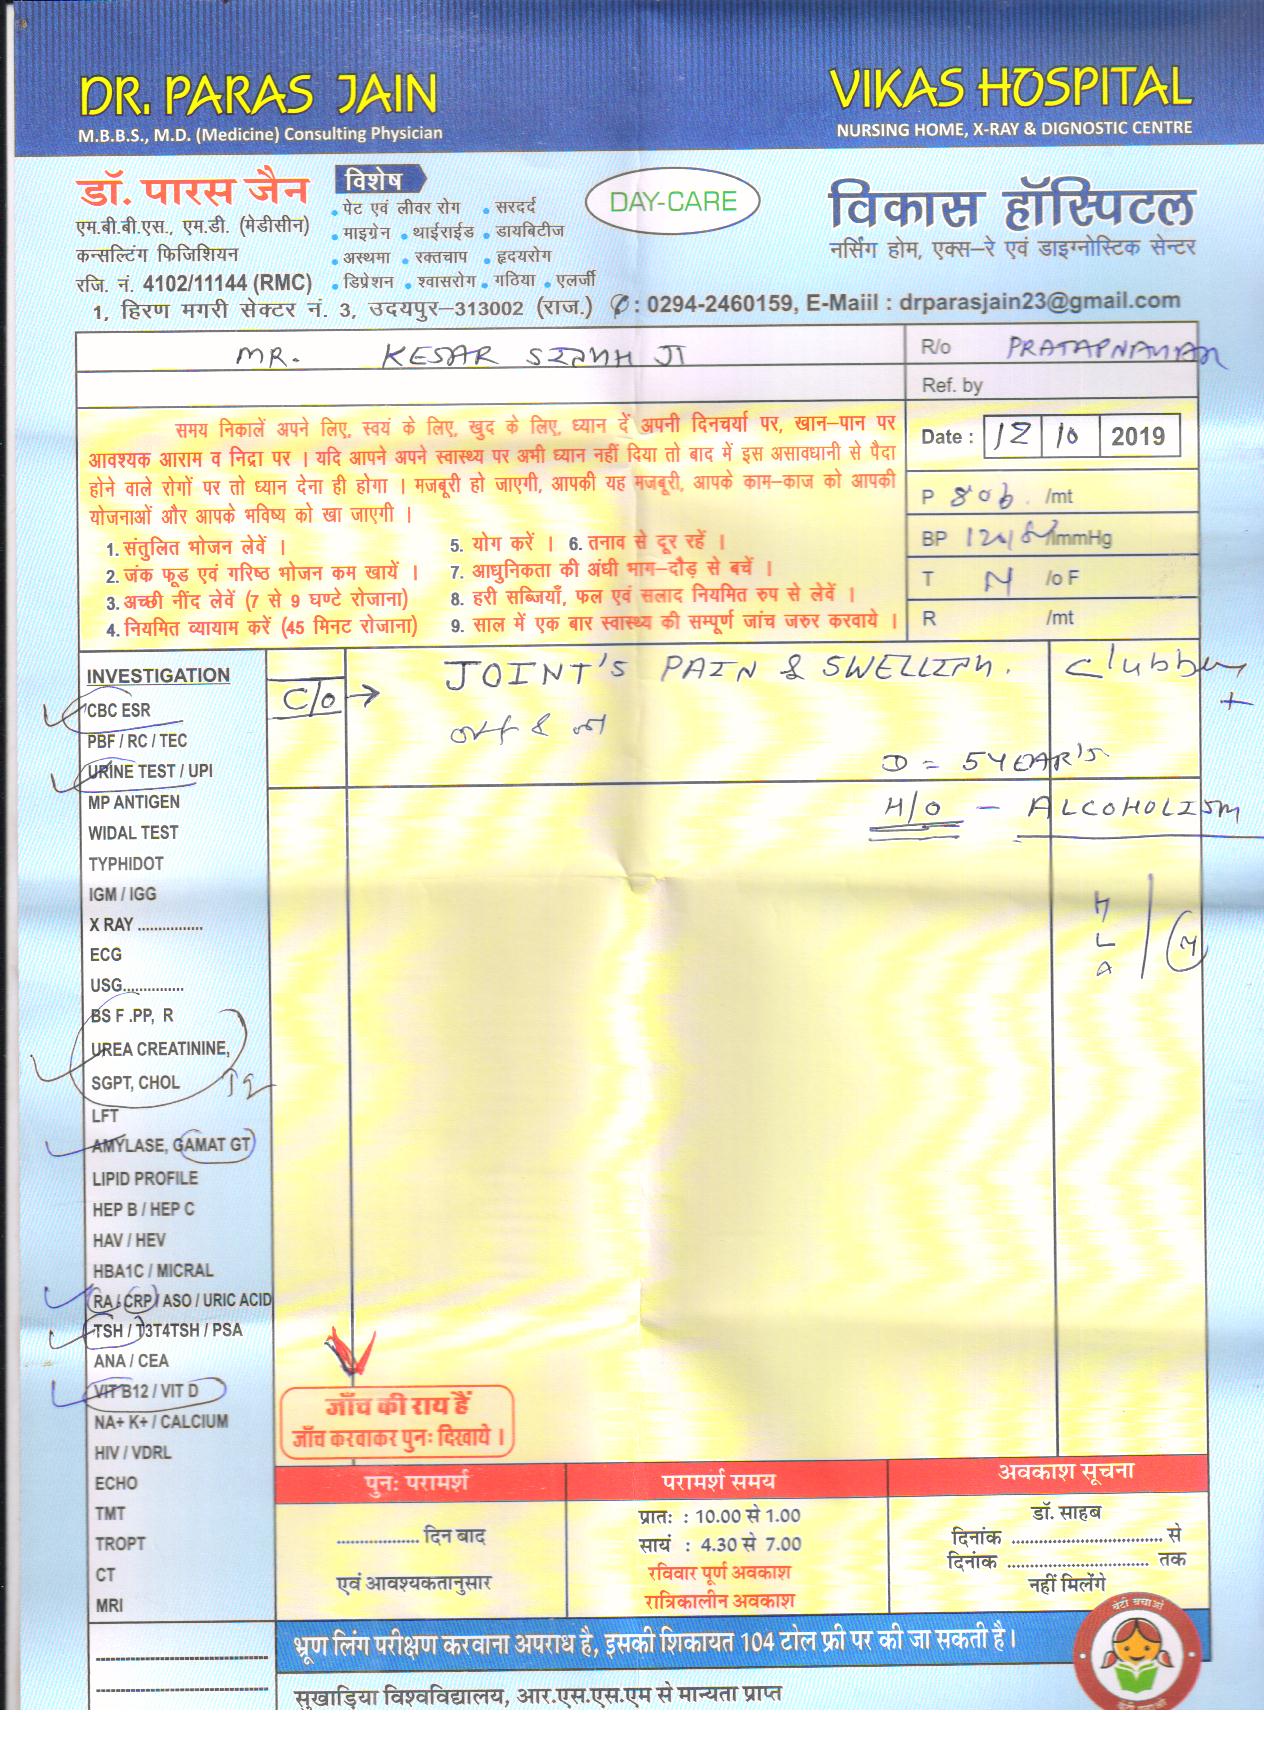 DR. PARAS JAIN
M.B.B.S., M.D. (Medicine) Consulting Physician
VIKAS HOSPITAL
NURSING HOME, X-RAY & DIGNOSTIC CENTRE
डॉ. पारस जैन
एम.बी.बी.एस., एम.डी. (मेडीसीन)
कन्सल्टिंग फिजिशियन
रजि. नं. 4102/11144 (RMC)
विशेष
• पेट एवं लीवर रोग • सरदर्द
• माइग्रेन • थाईराईड • डायबिटीज
• अस्थमा • रक्तचाप • हृदयरोग
• डिप्रेशन • श्वासरोग • गठिया • एलर्जी
DAY-CARE
विकास हॉस्पिटल
नर्सिंग होम, एक्स–रे एवं डाइग्नोस्टिक सेन्टर
1, हिरण मगरी सेक्टर नं. 3, उदयपुर–313002 (राज.) ✆: 0294-2460159, E-Maiil : drparasjain23@gmail.com
MR. KESAR SINGH JI
R/o
Ref. by
Date : 12 10 2019
P 80 /mt
BP /mmHg
T N /o F
R /mt
समय निकालें अपने लिए, स्वयं के लिए, खुद के लिए, ध्यान दें अपनी दिनचर्या पर, खान-पान पर
आवश्यक आराम व निद्रा पर । यदि आपने अपने स्वास्थ्य पर अभी ध्यान नहीं दिया तो बाद में इस असावधानी से पैदा
होने वाले रोगों पर तो ध्यान देना ही होगा । मजबूरी हो जाएगी, आपकी यह मजबूरी, आपके काम–काज को आपकी
योजनाओं और आपके भविष्य को खा जाएगी ।
1. संतुलित भोजन लेवें ।
2. जंक फूड एवं गरिष्ठ भोजन कम खायें ।
3. अच्छी नींद लेवें (7 से 9 घण्टे रोजाना)
4. नियमित व्यायाम करें (45 मिनट रोजाना)
5. योग करें । 6. तनाव से दूर रहें ।
7. आधुनिकता की अंधी भाग–दौड़ से बचें ।
8. हरी सब्जियाँ, फल एवं सलाद नियमित रुप से लेवें ।
9. साल में एक बार स्वास्थ्य की सम्पूर्ण जांच जरुर करवाये ।
INVESTIGATION
CBC ESR
PBF / RC / TEC
URINE TEST / UPI
MP ANTIGEN
WIDAL TEST
TYPHIDOT
IGM / IGG
X RAY ................
ECG
USG...............
BS F .PP, R
UREA CREATININE,
SGPT, CHOL
LFT
AMYLASE, GAMAT GT
LIPID PROFILE
HEP B / HEP C
HAV / HEV
HBA1C / MICRAL
RA / CRP / ASO / URIC ACID
TSH / T3T4TSH / PSA
ANA / CEA
VIT B12 / VIT D
NA+ K+ / CALCIUM
HIV / VDRL
ECHO
TMT
TROPT
CT
MRI
C/o → JOINT'S PAIN & SWELLING.
off & on
D = 5 YEAR'S
+
H/O – ALCOHOLISM
H
L
A
N
जाँच की राय हैं
जाँच करवाकर पुनः दिखाये ।
पुनः परामर्श
.................. दिन बाद
एवं आवश्यकतानुसार
परामर्श समय
प्रातः : 10.00 से 1.00
सायं : 4.30 से 7.00
रविवार पूर्ण अवकाश
रात्रिकालीन अवकाश
अवकाश सूचना
डॉ. साहब
दिनांक ................................ से
दिनांक .............................. तक
नहीं मिलेंगे
भ्रूण लिंग परीक्षण करवाना अपराध है, इसकी शिकायत 104 टोल फ्री पर की जा सकती है।
बेटी बचाओ
सुखाड़िया विश्वविद्यालय, आर.एस.एस.एम से मान्यता प्राप्त
बेटी पढ़ाओ